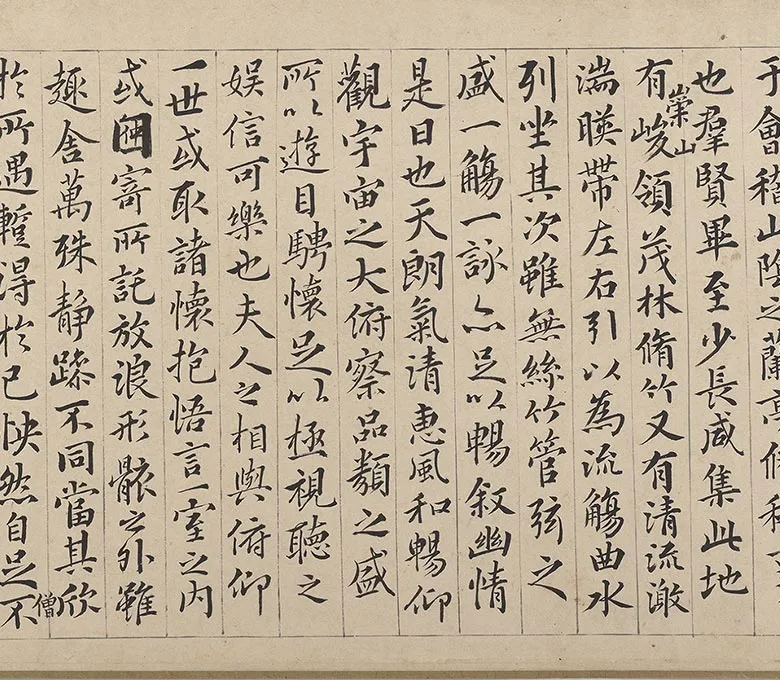 于會稽山陰之蘭亭脩稧
也羣賢畢至少長咸集此地
有崇山峻領茂林脩竹又有清流激
湍暎帶左右引以為流觴曲水
列坐其次雖無絲竹管弦之
盛一觴一詠亦足以暢叙幽情
是日也天朗氣清惠風和暢仰
觀宇宙之大俯察品類之盛
所以遊目騁懷足以極視聽之
娛信可樂也夫人之相與俯仰
一世或取諸懷抱悟言一室之內
或因寄所託放浪形骸之外雖
趣舍萬殊靜躁不同當其欣
僧
於所遇暫得於己怏然自足不